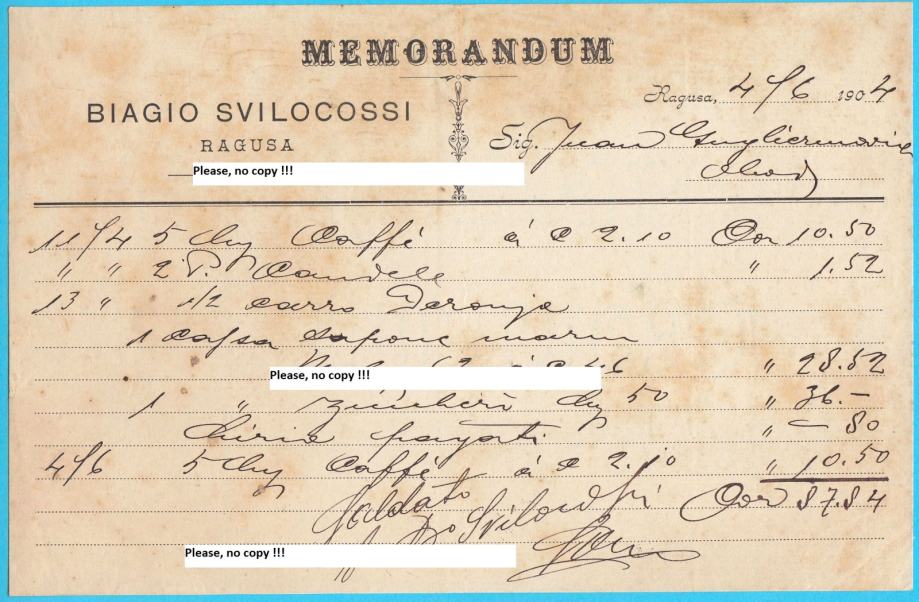 MEMORANDUM
BIAGIO SVILOCOSSI
RAGUSA
Ragusa, 4/6 1904
Sig. Juan
Please, no copy !!!
11/4 5 Caffè à C 2.10 Cor 10.50
" " 2 P. Candele " 1.52
13 " 1/2 carro
1 cassa sapone marm
62 à C 46 " 28.52
Please, no copy !!!
1 " zuccheri 50 " 36.–
" – 80
4/6 5 Caffè à C 2.10 " 10.50
Saldato Cor 87.84
Please, no copy !!!